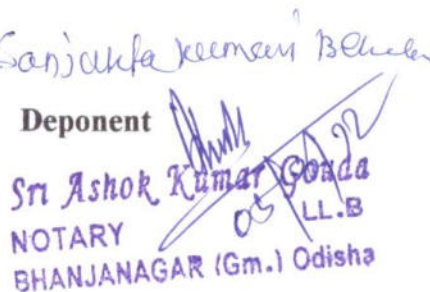 Sanjukta kumari Behera
Deponent
Sri Ashok Kumar Gouda
LL.B
NOTARY
BHANJANAGAR (Gm.) Odisha